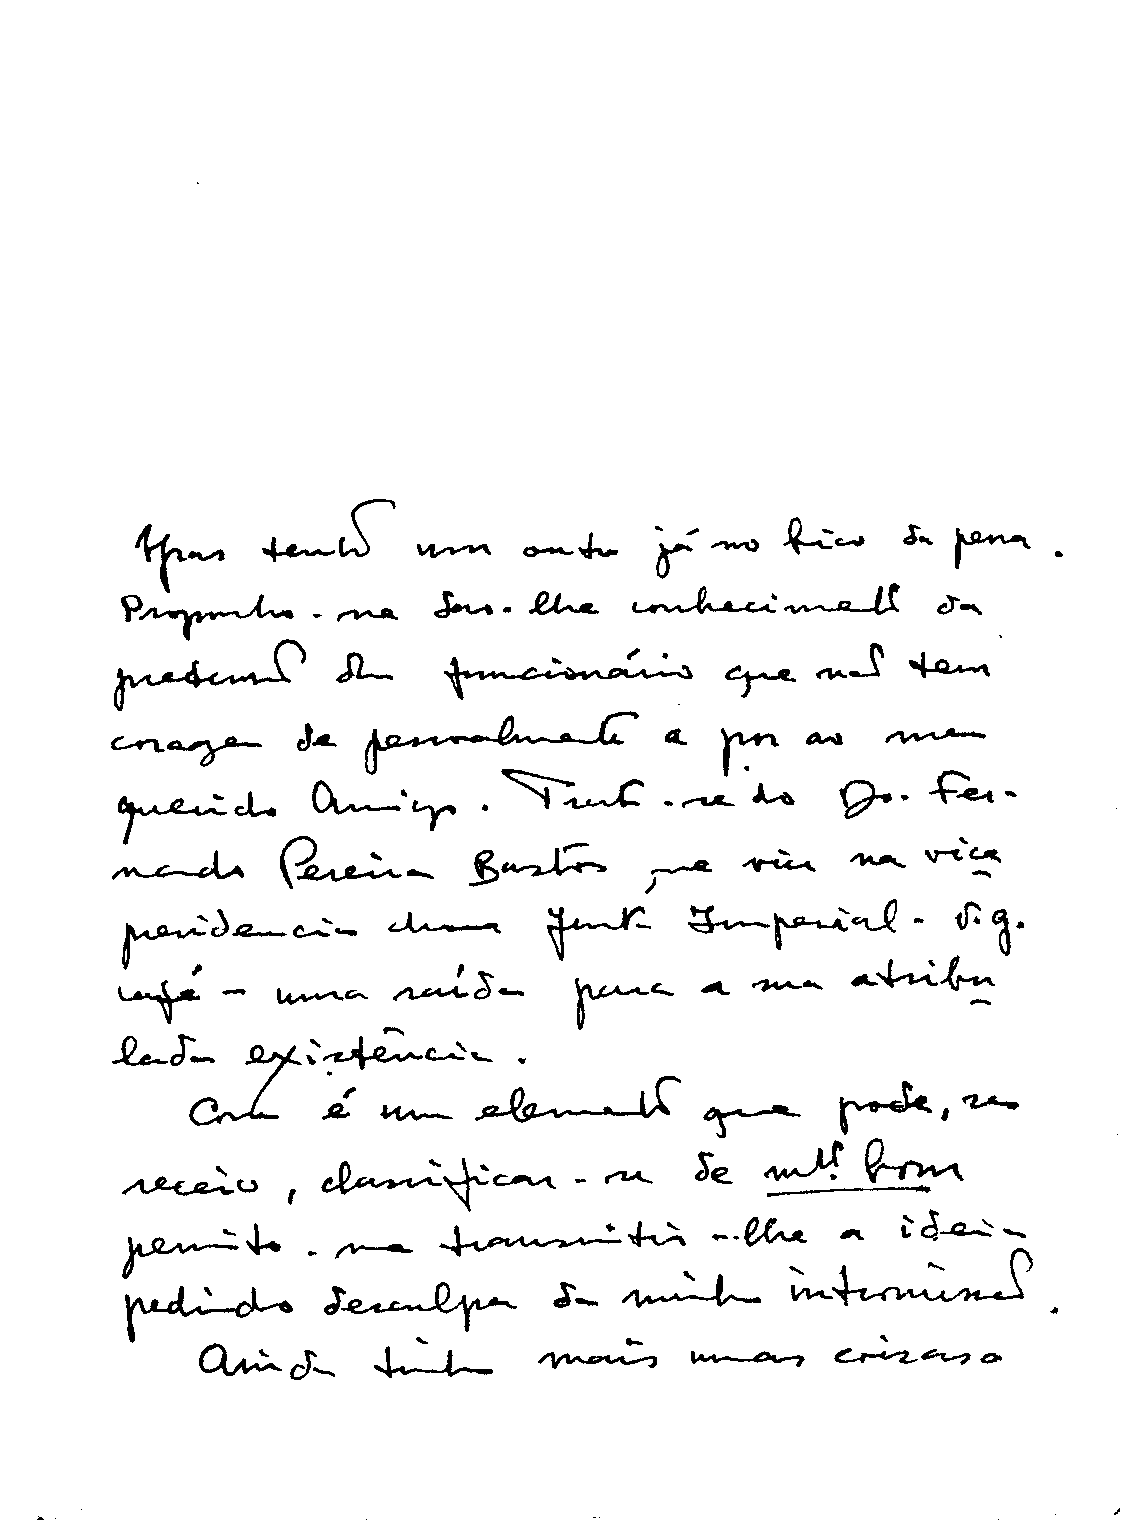 Mas tenho um outro já no bico da pena.
Proponho-me dar-lhe conhecimento da
pretensão dum funcionário que não tem
coragem de pessoalmente a pôr ao meu
querido Amigo. Trata-se do Dr. Fer-
nando Pereira Bastos que viu na vice
presidencia duma Junta Imperial - v.g.
café - uma saída para a sua atribu
lada existência.
Como é um elemento que pode, sem
receio, classificar-se de mtº bom
permito-me transmitir-lhe a ideia
pedindo desculpa da minha intromissão.
Ainda tinha mais umas coisas a